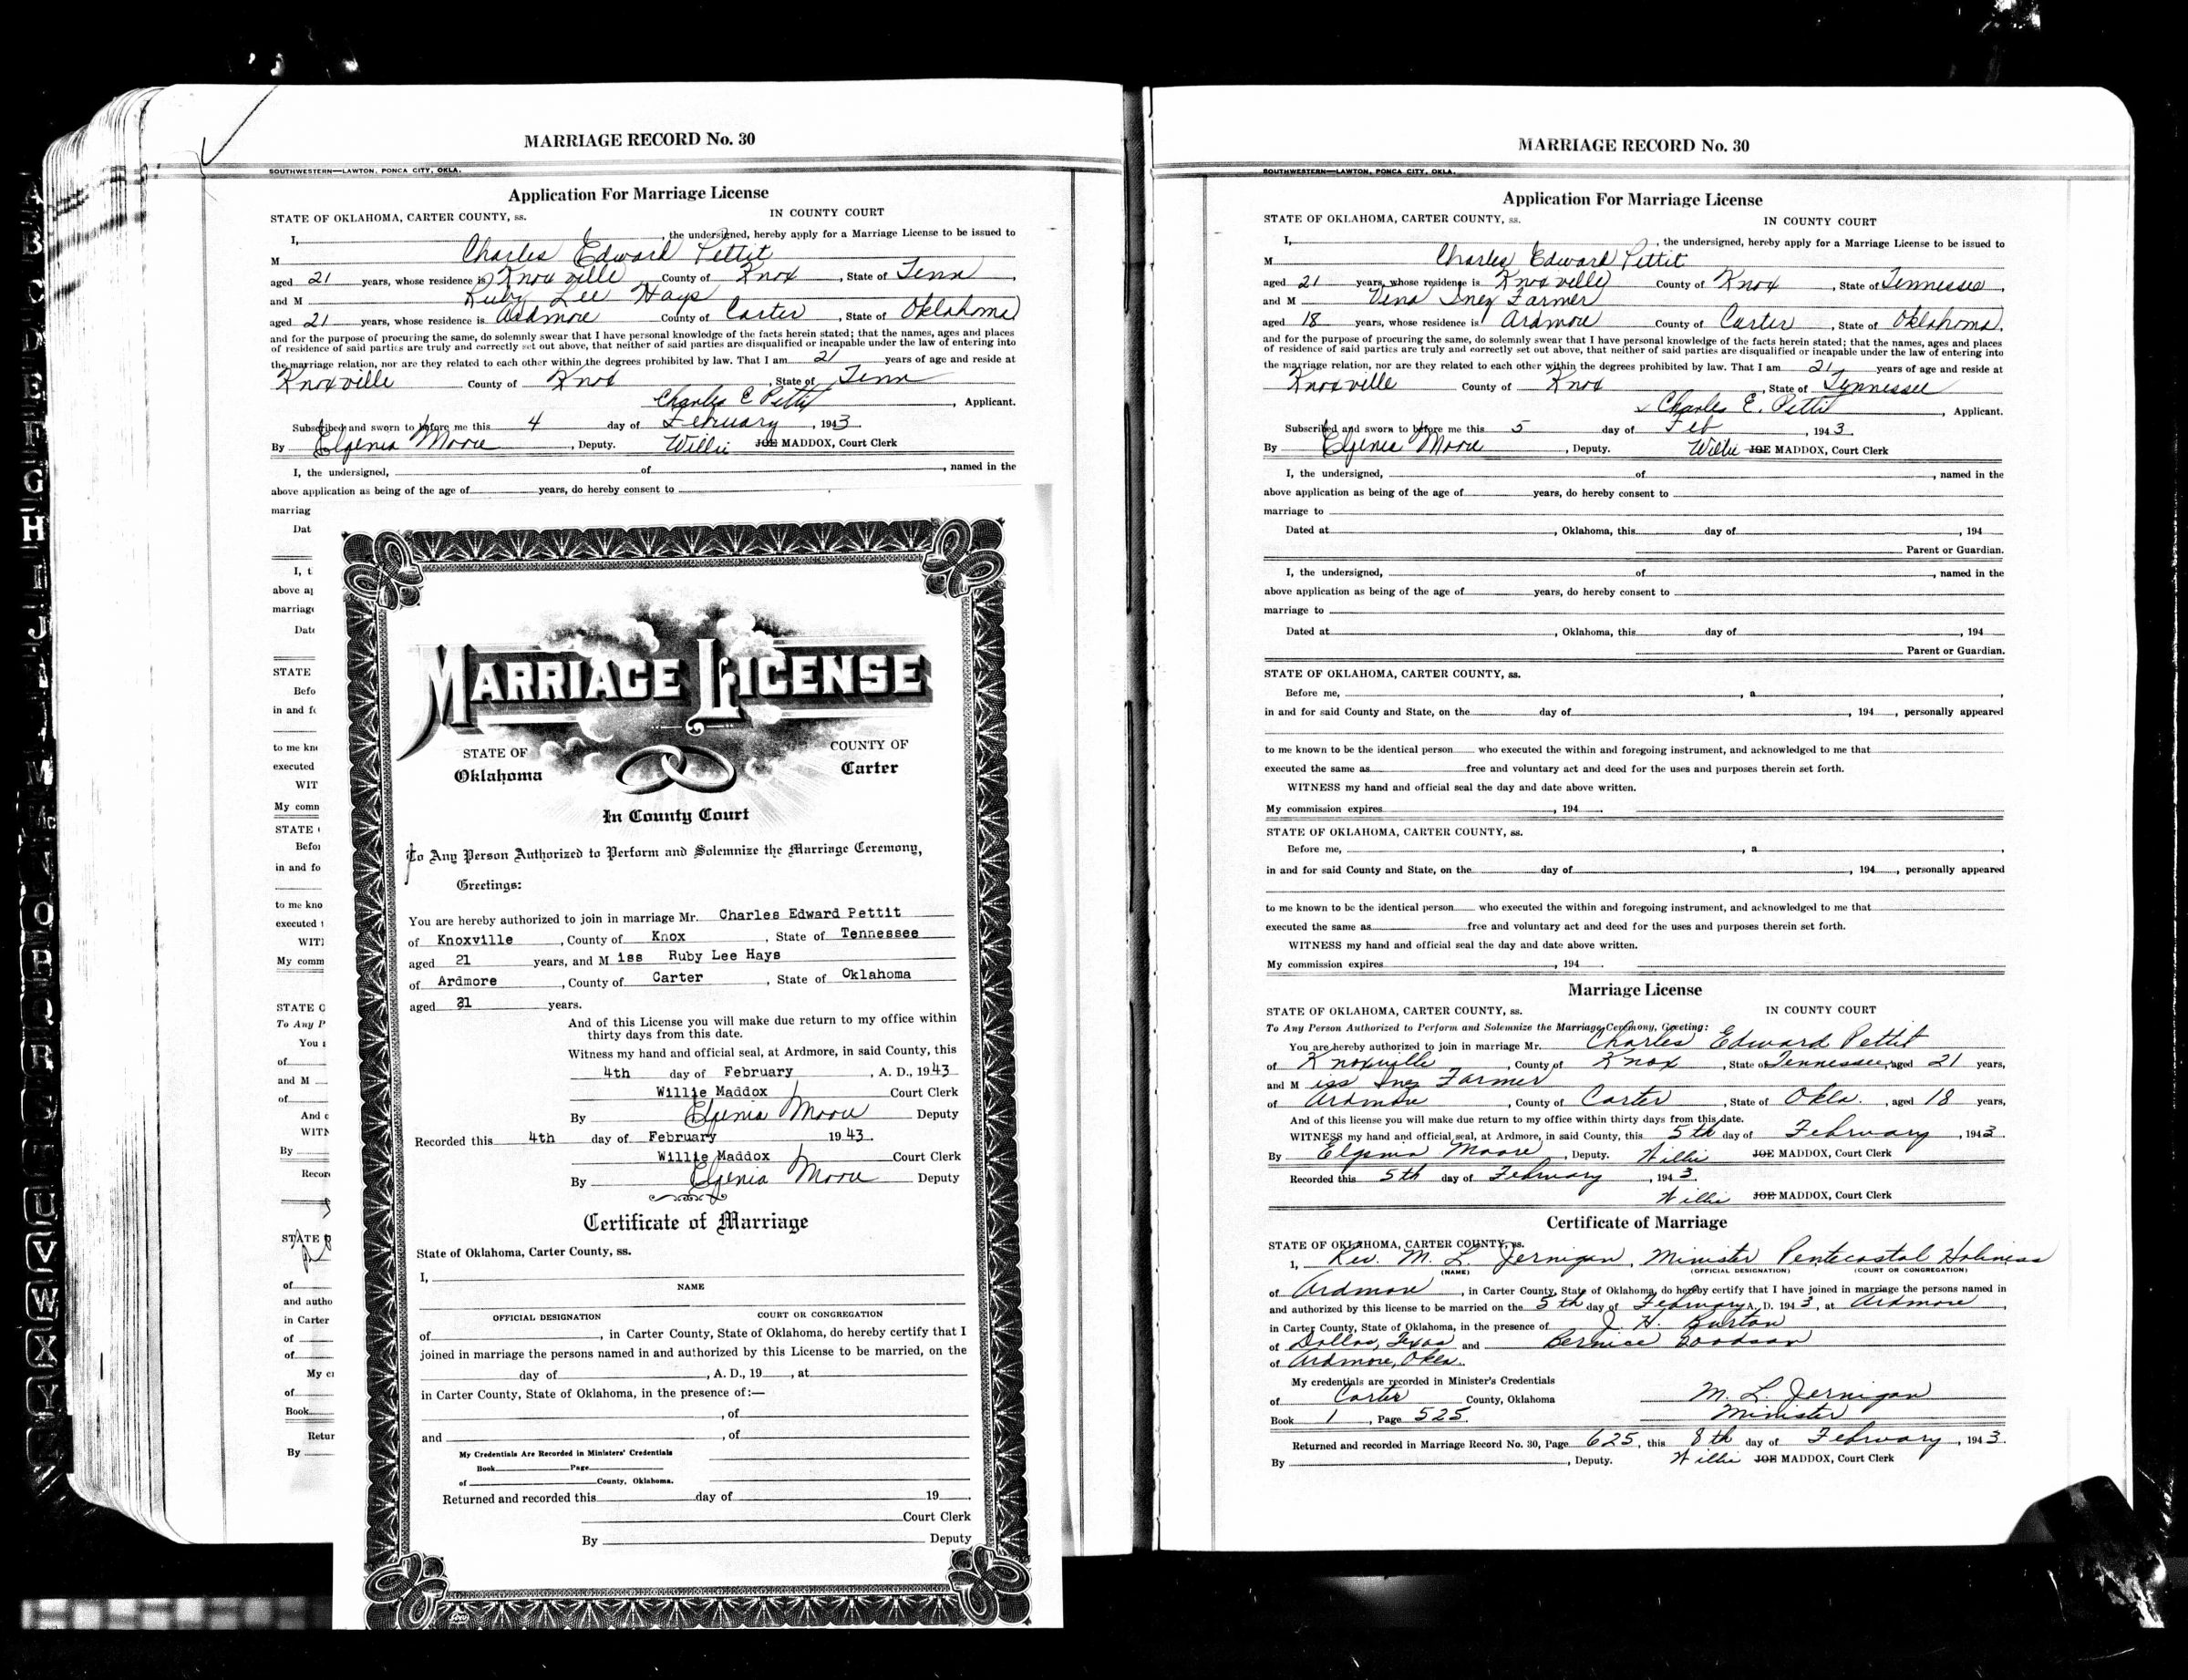 MARRIAGE RECORD No. 30
SOUTHWESTERN—LAWTON, PONCA CITY, OKLA.
Application For Marriage License
STATE OF OKLAHOMA, CARTER COUNTY, ss. IN COUNTY COURT
I, , the undersigned, hereby apply for a Marriage License to be issued to
M Charles Edward Pettit
aged 21 years, whose residence is Knoxville County of Knox , State of Tenn ,
and M Ruby Lee Hays
aged 21 years, whose residence is Ardmore County of Carter , State of Oklahoma
and for the purpose of procuring the same, do solemnly swear that I have personal knowledge of the facts herein stated; that the names, ages and places
of residence of said parties are truly and correctly set out above, that neither of said parties are disqualified or incapable under the law of entering into
the marriage relation, nor are they related to each other within the degrees prohibited by law. That I am 21 years of age and reside at
Knoxville County of Knox , State of Tenn
Charles E Pettit , Applicant.
Subscribed and sworn to before me this 4 day of February , 1943
By Elgenia Moore , Deputy. Willie JOE MADDOX, Court Clerk
I, the undersigned, of , named in the
above application as being of the age of years, do hereby consent to
marriag
Dat
I, t
above a
marriag
Date
STATE
Befo
in and fo
to me kn
executed
WIT
My comn
STATE
Befor
in and fo
to me kno
executed
WIT
My comm
STATE O
To Any P
You
of
and M
of
And
WIT
By
Recor
STATE
of
and autho
in Carter
of
of
My c
of
Book
Retur
By
MARRIAGE LICENSE
STATE OF COUNTY OF
Oklahoma Carter
In County Court
To Any Person Authorized to Perform and Solemnize the Marriage Ceremony,
Greetings:
You are hereby authorized to join in marriage Mr. Charles Edward Pettit
of Knoxville , County of Knox , State of Tennessee
aged 21 years, and M iss Ruby Lee Hays
of Ardmore , County of Carter , State of Oklahoma
aged 21 years.
And of this License you will make due return to my office within
thirty days from this date.
Witness my hand and official seal, at Ardmore, in said County, this
4th day of February , A. D., 1943
Willie Maddox Court Clerk
By Elgenia Moore Deputy
Recorded this 4th day of February 1943.
Willie Maddox Court Clerk
By Elgenia Moore Deputy
Certificate of Marriage
State of Oklahoma, Carter County, ss.
I,
NAME
OFFICIAL DESIGNATION COURT OR CONGREGATION
of , in Carter County, State of Oklahoma, do hereby certify that I
joined in marriage the persons named in and authorized by this License to be married, on the
day of , A. D., 19 , at
in Carter County, State of Oklahoma, in the presence of:—
, of
and , of
My Credentials Are Recorded in Ministers' Credentials
Book Page
of County, Oklahoma.
Returned and recorded this day of 19 .
Court Clerk
By Deputy
MARRIAGE RECORD No. 30
SOUTHWESTERN—LAWTON, PONCA CITY, OKLA.
Application For Marriage License
STATE OF OKLAHOMA, CARTER COUNTY, ss. IN COUNTY COURT
I, , the undersigned, hereby apply for a Marriage License to be issued to
M Charles Edward Pettit
aged 21 years, whose residence is Knoxville County of Knox , State of Tennessee ,
and M Vena Inez Farmer
aged 18 years, whose residence is Ardmore County of Carter , State of Oklahoma,
and for the purpose of procuring the same, do solemnly swear that I have personal knowledge of the facts herein stated; that the names, ages and places
of residence of said parties are truly and correctly set out above, that neither of said parties are disqualified or incapable under the law of entering into
the marriage relation, nor are they related to each other within the degrees prohibited by law. That I am 21 years of age and reside at
Knoxville County of Knox , State of Tennessee
Charles E. Pettit , Applicant.
Subscribed and sworn to before me this 5 day of Feb , 1943
By Elgenia Moore , Deputy. Willie JOE MADDOX, Court Clerk
I, the undersigned, of , named in the
above application as being of the age of years, do hereby consent to
marriage to
Dated at , Oklahoma, this day of , 194
Parent or Guardian.
I, the undersigned, of , named in the
above application as being of the age of years, do hereby consent to
marriage to
Dated at , Oklahoma, this day of , 194
Parent or Guardian.
STATE OF OKLAHOMA, CARTER COUNTY, ss.
Before me, , a ,
in and for said County and State, on the day of , 194 , personally appeared
to me known to be the identical person who executed the within and foregoing instrument, and acknowledged to me that
executed the same as free and voluntary act and deed for the uses and purposes therein set forth.
WITNESS my hand and official seal the day and date above written.
My commission expires , 194
STATE OF OKLAHOMA, CARTER COUNTY, ss.
Before me, , a ,
in and for said County and State, on the day of , 194 , personally appeared
to me known to be the identical person who executed the within and foregoing instrument, and acknowledged to me that
executed the same as free and voluntary act and deed for the uses and purposes therein set forth.
WITNESS my hand and official seal the day and date above written.
My commission expires , 194
Marriage License
STATE OF OKLAHOMA, CARTER COUNTY, ss. IN COUNTY COURT
To Any Person Authorized to Perform and Solemnize the Marriage Ceremony, Greeting:
You are hereby authorized to join in marriage Mr. Charles Edward Pettit
of Knoxville , County of Knox , State of Tennessee, aged 21 years,
and M iss Inez Farmer
of Ardmore , County of Carter , State of Okla. , aged 18 years,
And of this license you will make due return to my office within thirty days from this date.
WITNESS my hand and official seal, at Ardmore, in said County, this 5th day of February , 1943.
By Elgenia Moore , Deputy. Willie JOE MADDOX, Court Clerk
Recorded this 5th day of February , 1943.
Willie JOE MADDOX, Court Clerk
Certificate of Marriage
STATE OF OKLAHOMA, CARTER COUNTY, ss.
I, Rev. M. L. Jernigan, Minister Pentecostal Holiness
(NAME) (OFFICIAL DESIGNATION) (COURT OR CONGREGATION)
of Ardmore , in Carter County, State of Oklahoma, do hereby certify that I have joined in marriage the persons named in
and authorized by this license to be married on the 5th day of February A. D. 1943, at Ardmore ,
in Carter County, State of Oklahoma, in the presence of J. H. Burton
of Dallas, Texas and Bernice Woodson
of Ardmore, Okla.
My credentials are recorded in Minister's Credentials
of Carter County, Oklahoma M. L. Jernigan
Book 1 , Page 525. Minister
Returned and recorded in Marriage Record No. 30, Page 625, this 8th day of February , 1943.
By , Deputy. Willie JOE MADDOX, Court Clerk